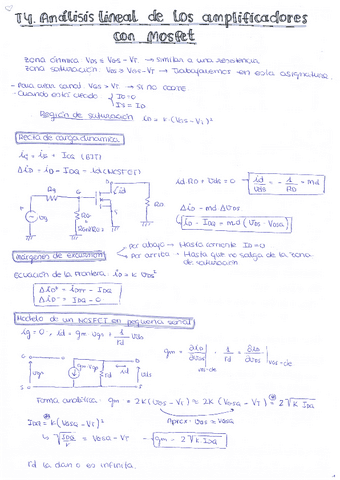 T4. Análisis lineal de los amplificadores
con Mosfet
Zona óhmica VDS < VGS - VT → similar a una resistencia
Zona saturación: VDS > VGS - VT → Trabajaremos en esta asignatura.
- Para crear canal VGS > VT → si no corte
- Cuando está creado { IG = 0
IS = ID
Región de saturación iD = K (VGS - VT)²
Recta de carga dinámica
iC = ic + ICQ (BJT)
ΔiD = iD - IDQ = id (MOSFET)
Rg G D id RD
Vg RG S
id · RD + vds = 0 → id/vds = - 1/RD = md
ΔiD = md · ΔVDS
iD - IDQ = md (VDS - VDSQ)
Márgenes de excursión
Por abajo → Hasta corriente ID = 0
Por arriba → Hasta que no salga de la zona
de saturación
Ecuación de la frontera: iD = K VDS²
ΔiD⁺ = iDM - IDQ
ΔiD⁻ = IDQ - 0
Modelo de un MOSFET en pequeña señal
ig = 0 , id = gm vgs + 1/rd vds
G D S
vgs gm·vgs rd id vds
gm = ∂iD/∂VGS | 1/rd = ∂iD/∂VDS | VGS = cte
Forma analítica: gm = 2K (VGS - VT) ≈ 2K (VGSQ - VT) = 2√K IDQ
Aprox. VGS ≈ VGSQ
IDQ = K (VGSQ - VT)²
↳ √IDQ/K = VGSQ - VT → gm = 2√K IDQ
rd la dan o es infinita.